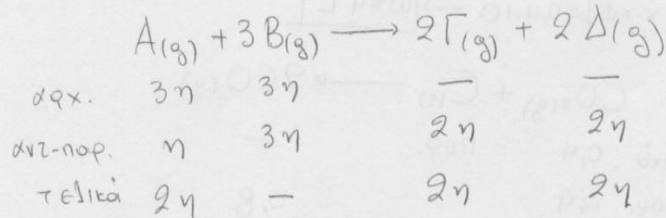 A(g) + 3B(g) ⟶ 2Γ(g) + 2Δ(g)
αρχ. 3n 3n — —
αντ-παρ. n 3n 2n 2n
τελικά 2n — 2n 2n